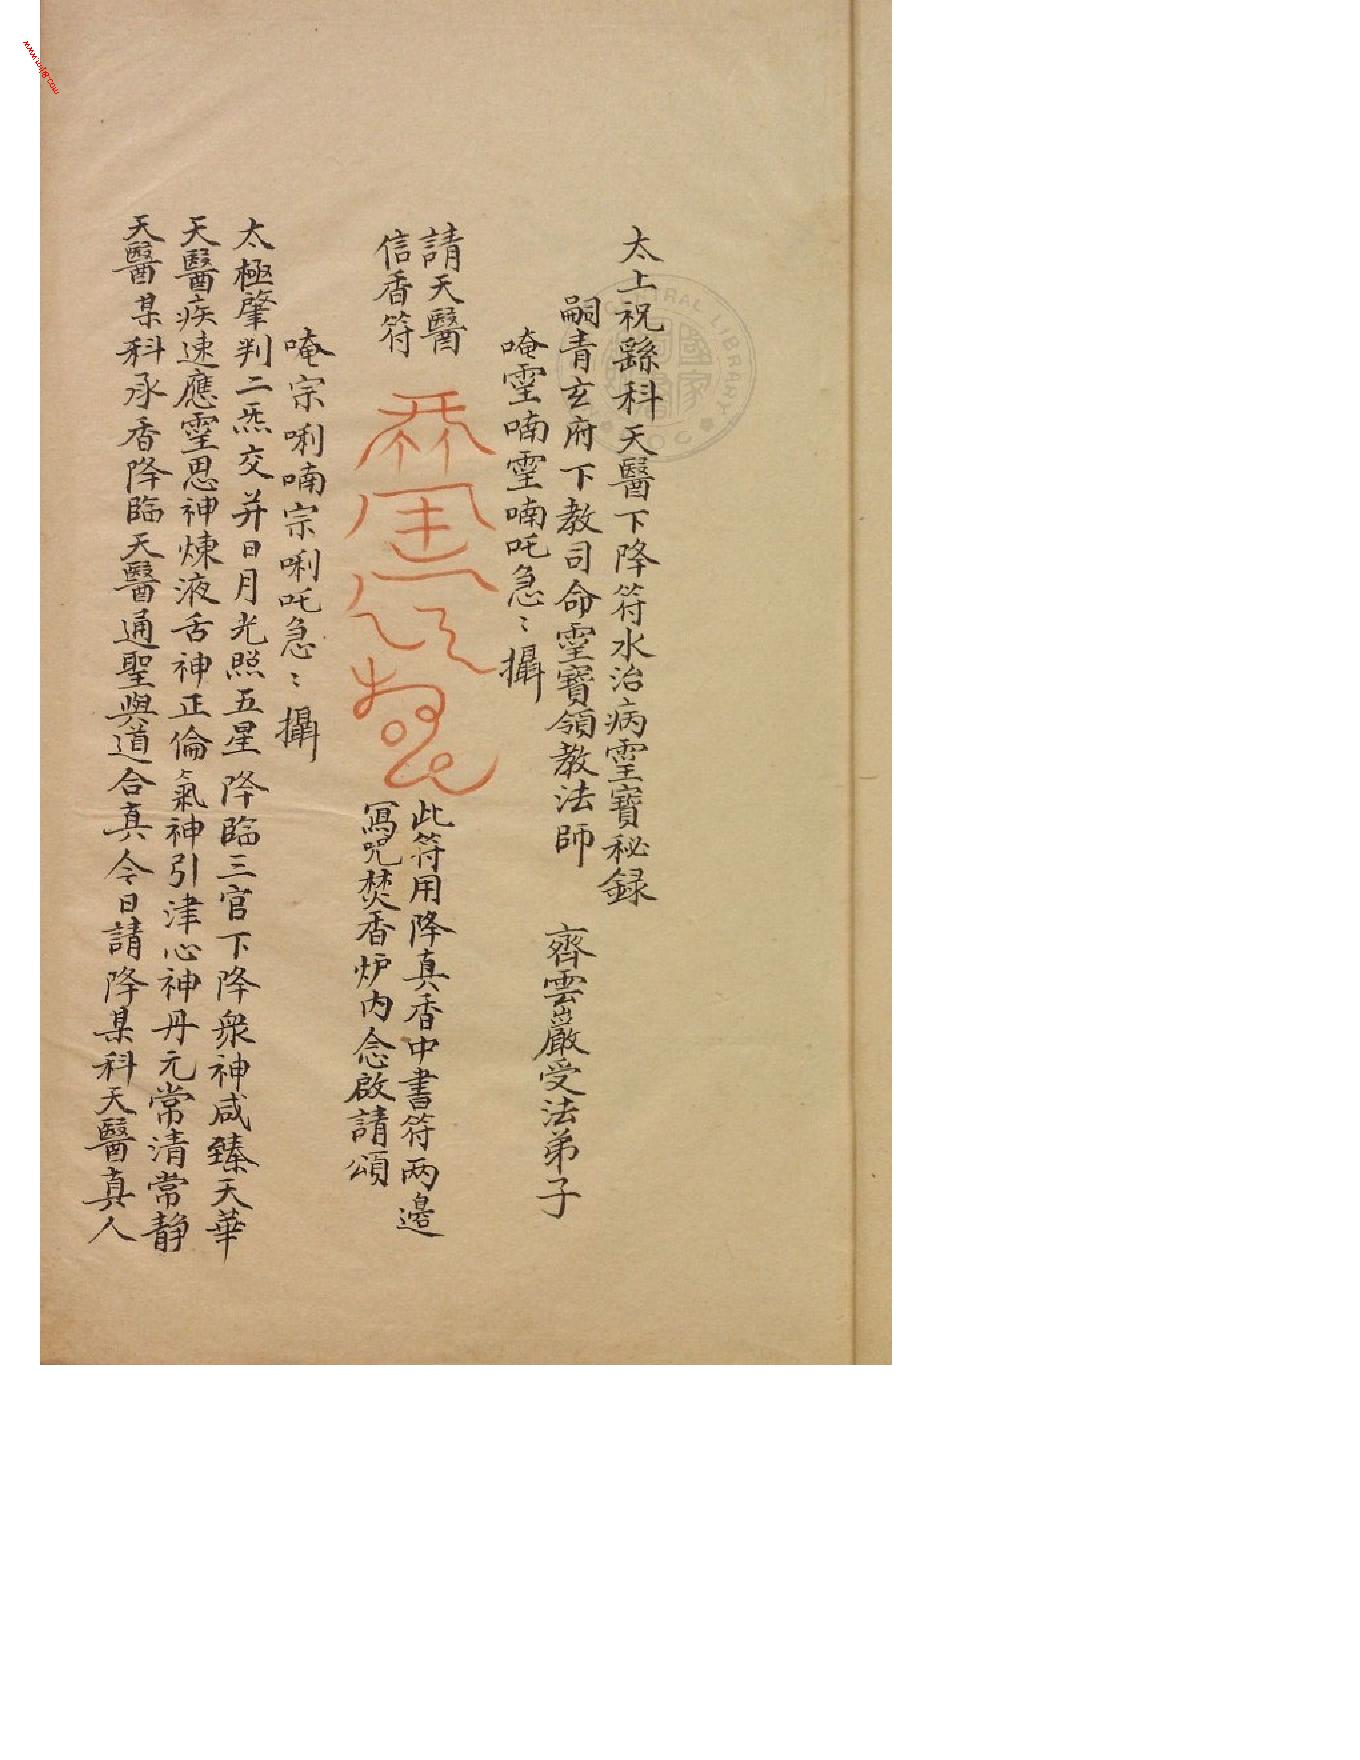 太上祝繇科天醫下降符水治病𤫊寶秘録
嗣青玄府下教司命𤫊寶領教法師 齊雲巖受法弟子
唵𤫊喃𤫊喃吒急〻攝
請天醫
信香符
此符用降真香中書符两邉
寫咒焚香炉内念啟請頌
唵宗唎喃宗唎吒急〻攝
太極肇判二炁交并日月光照五星降臨三官下降衆神咸臻天華
天醫疾速應𤫊思神煉液舌神正倫氣神引津心神丹元常清常静
天醫某科承香降臨天醫通聖與道合真今日請降某科天醫真人
CENTRAL LIBRARY